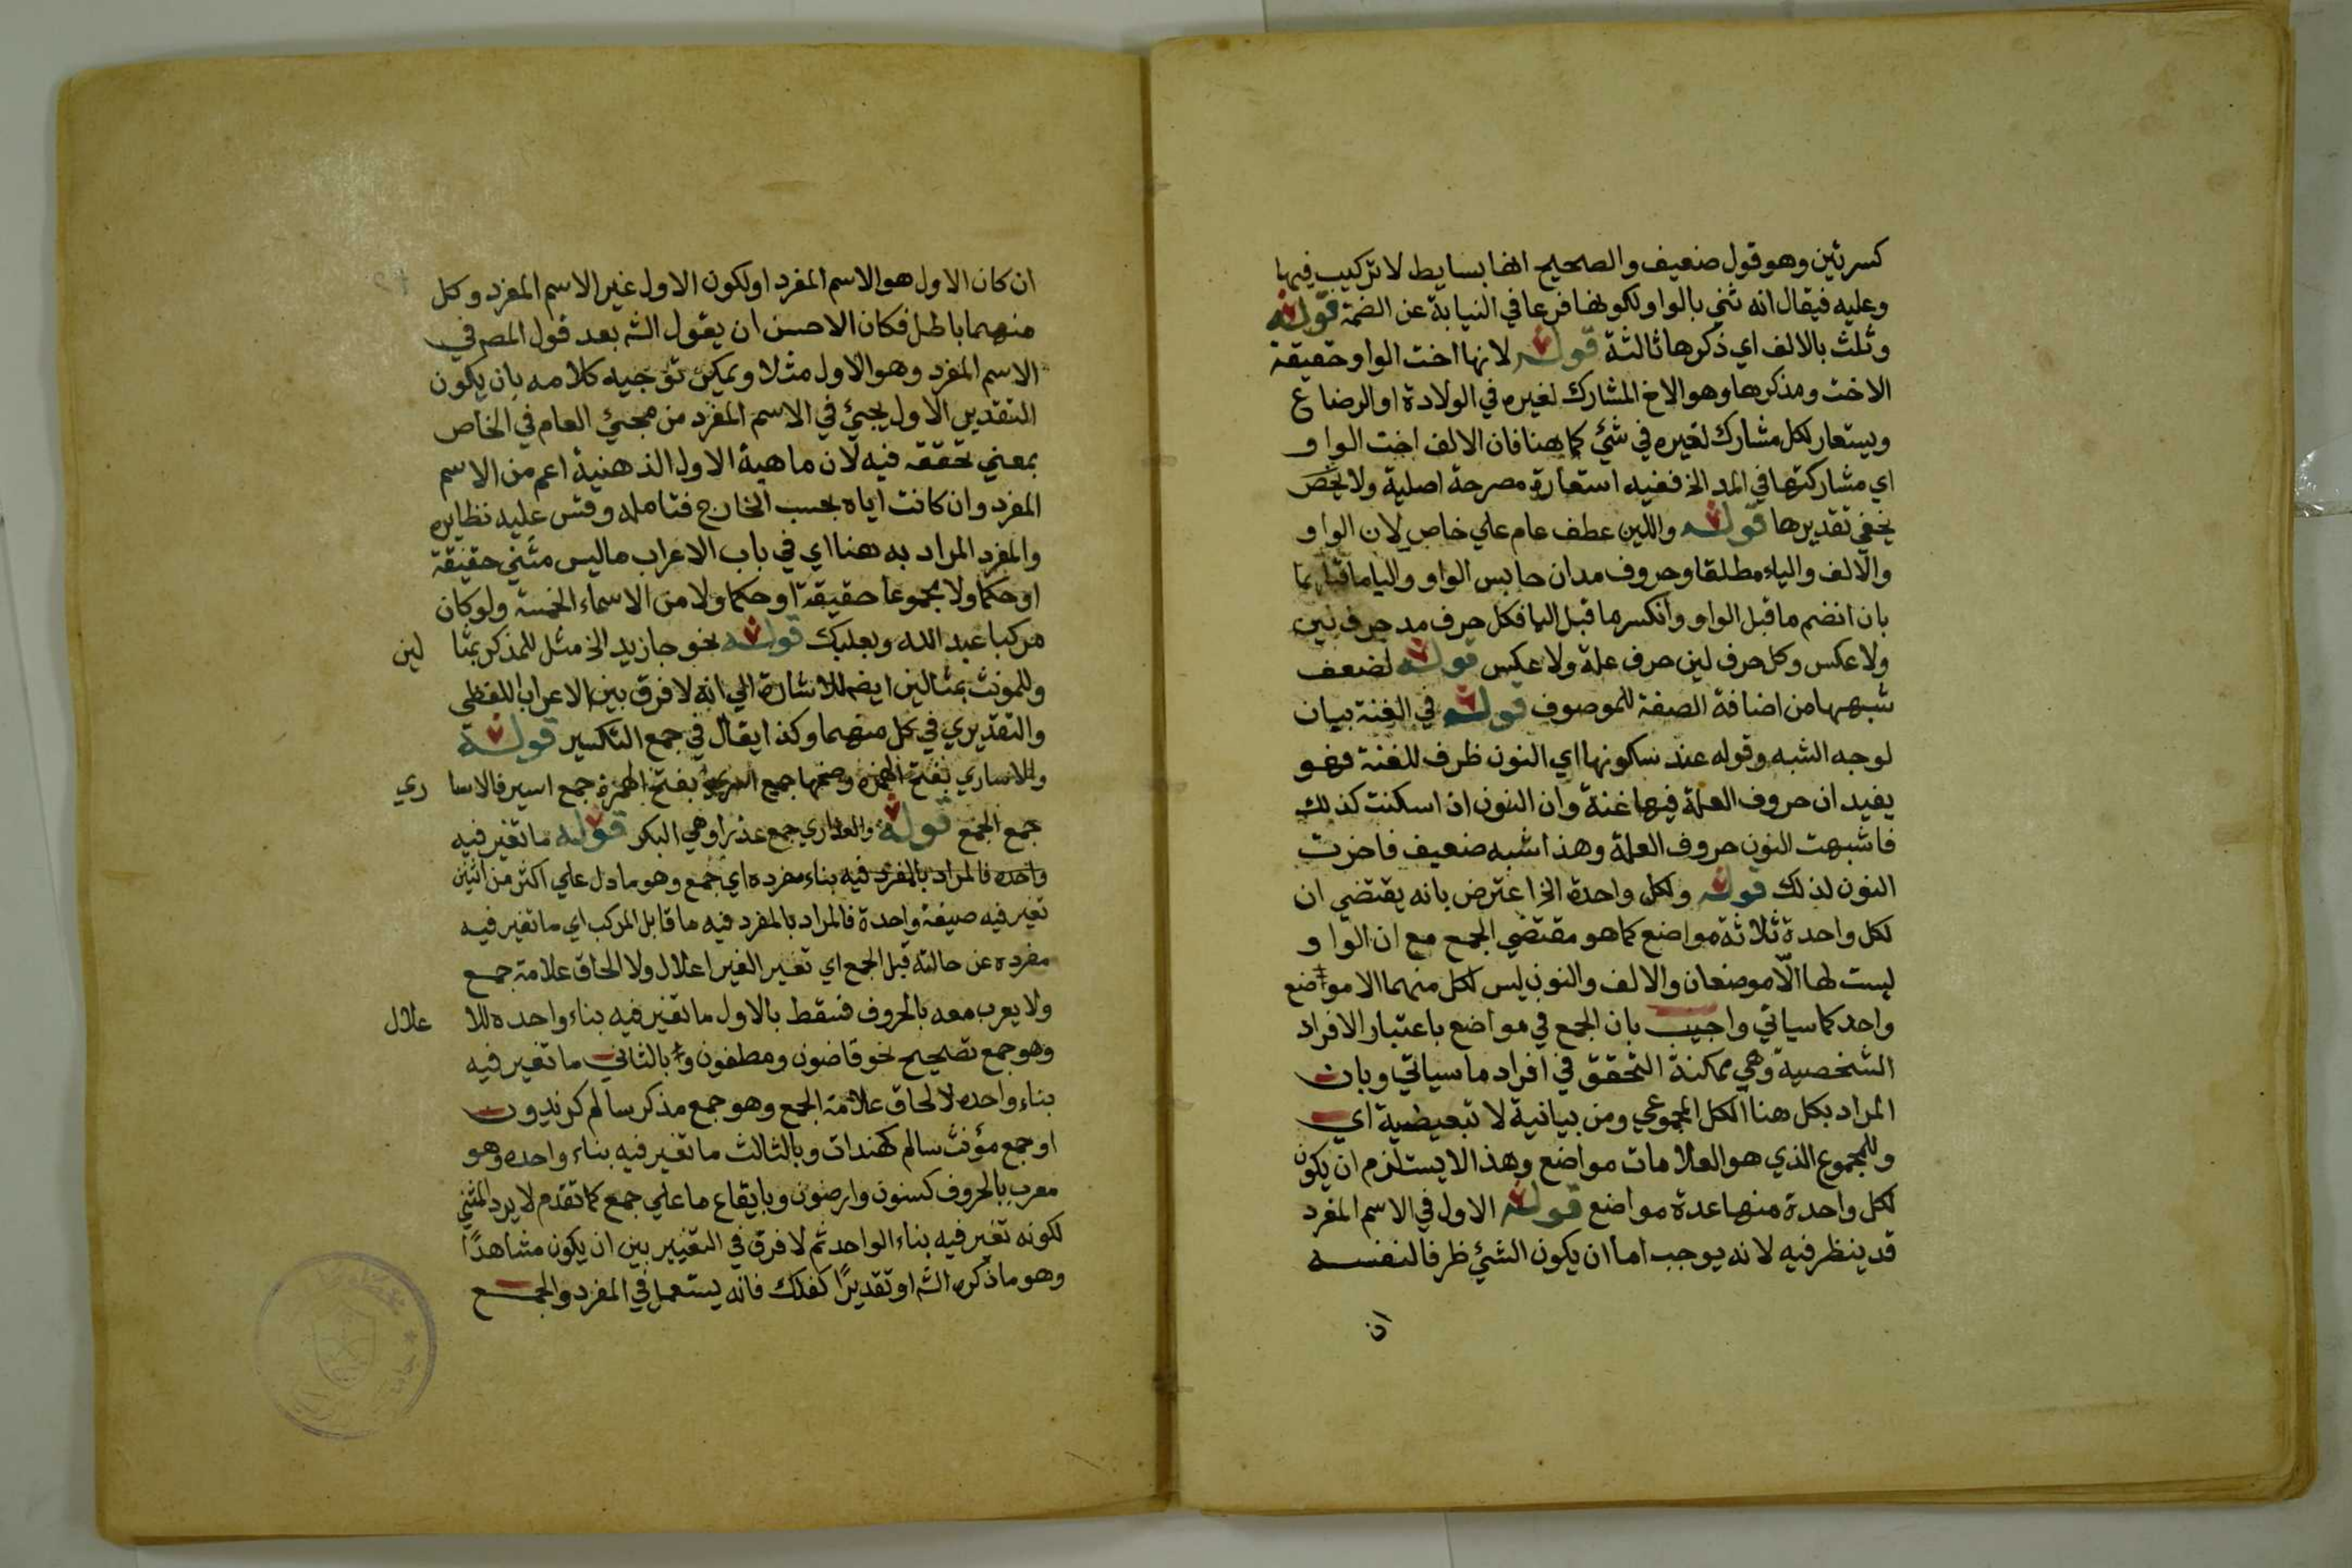 كسرتين وهو قول ضعيف والصحيح انها بسايط لا تركيب فيها
وعليه فيقال انه ثني بالواو لكونها فرعا في النيابة عن الضمة قوله
وثلث بالالف اي ذكرها ثالثة قوله لانها اخت الواو حقيقة
الاخت ومذكرها وهو الاخ المشارك لغيره في الولادة او الرضاع
ويستعار لكل مشارك لغيره في شئ كما هنا فان الالف اخت الواو
اي مشاركتها في المد الخ ففيه استعارة مصرحة اصلية ولا يخص
يخفي تقديرها قوله واللين عطف عام علي خاص لان الواو
والالف والياء مطلقا وحروف مد ان جانس الواو والياء ما قبلهما
بان انضم ما قبل الواو وانكسر ما قبل اليا فكل حرف مد حرف لين
ولا عكس وكل حرف لين حرف علة ولا عكس قوله لضعف
شبهها من اضافة الصفة للموصوف قوله في الغنة بيان
لوجه الشبه وقوله عند سكونها اي النون ظرف للغنة فهو
يفيد ان حروف العلة فيها غنة وان النون ان اسكنت كذلك
فاشبهت النون حروف العلة وهذا شبه ضعيف فاخرت
النون لذلك قوله ولكل واحدة الخ اعترض بانه يقتضي ان
لكل واحدة ثلاثة مواضع كما هو مقتضي الجمع مع ان الواو
ليست لها الا موضعان والالف والنون ليس لكل منهما الا موضع
واحد كما سياتي واجيب بان الجمع في مواضع باعتبار الافراد
الشخصية وهي ممكنة التحقق في افراد ما سياتي وبان
المراد بكل هنا الكل المجموعي ومن بيانية لا تبعيضية اي
وللمجموع الذي هو العلامات مواضع وهذا لا يستلزم ان يكون
لكل واحدة منها عدة مواضع قوله الاول في الاسم المفرد
قد ينظر فيه لانه يوجب اما ان يكون الشئ ظرفا لنفسه
ان
ان كان الاول هو الاسم المفرد او لكون الاول غير الاسم المفرد وكل
منهما باطل فكان الاحسن ان يقول الشه بعد قول المصر في
الاسم المفرد وهو الاول مثلا ويمكن توجيه كلامه بان يكون
التقدير الاول يجئ في الاسم المفرد من مجئ العام في الخاص
بمعني تحققه فيه لان ماهية الاول الذهنية اعم من الاسم
المفرد وان كانت اياه بحسب الخارج فتامله وقس عليه نظايره
والمفرد المراد به هنا اي في باب الاعراب ما ليس مثني حقيقة
او حكما ولا مجموعا حقيقة او حكما ولا من الاسماء الخمسة ولو كان
مركبا عبد الله وبعلبك قوله نحو جا زيد الخ مثل للمذكر بمثا لين
وللمونث بمثالين ايضا للاشارة الي انه لا فرق بين الاعراب اللفظي
والتقديري في كل منهما وكذا يقال في جمع التكسير قوله
والاساري بفتح الهمزة وضمها جمع اسري بفتح الهمزة جمع اسير فالاسا ري
جمع الجمع قوله والعذاري جمع عذرا وهي البكر قوله ما تغير فيه
واحده فالمراد بالمفرد فيه بناء مفرده اي جمع وهو ما دل علي اكثر من اثنين
تغير فيه صيغة واحدة فالمراد بالمفرد فيه ما قابل المركب اي ما تغير فيه
مفرده عن حالته قبل الجمع اي تغير الغير اعلال ولا الحاق علامة جمع
ولا يعرب معه بالحروف فسقط بالاول ما تغير فيه بناء واحده للا علال
وهو جمع تصحيح نحو قاضون ومصطفون و بالثاني ما تغير فيه
بناء واحده لالحاق علامة الجمع وهو جمع مذكر سالم كزيدون
او جمع مؤنث سالم كهندات وبالثالث ما تغير فيه بناء واحده وهو
معرب بالحروف كسنون وارضون وبايقاع ما علي جمع كما تقدم لا يرد المثني
لكونه تغير فيه بناء الواحد ثم لا فرق في التغيير بين ان يكون مشاهدًا
وهو ما ذكره الشه او تقديرًا كفلك فانه يستعمل في المفرد والجمع